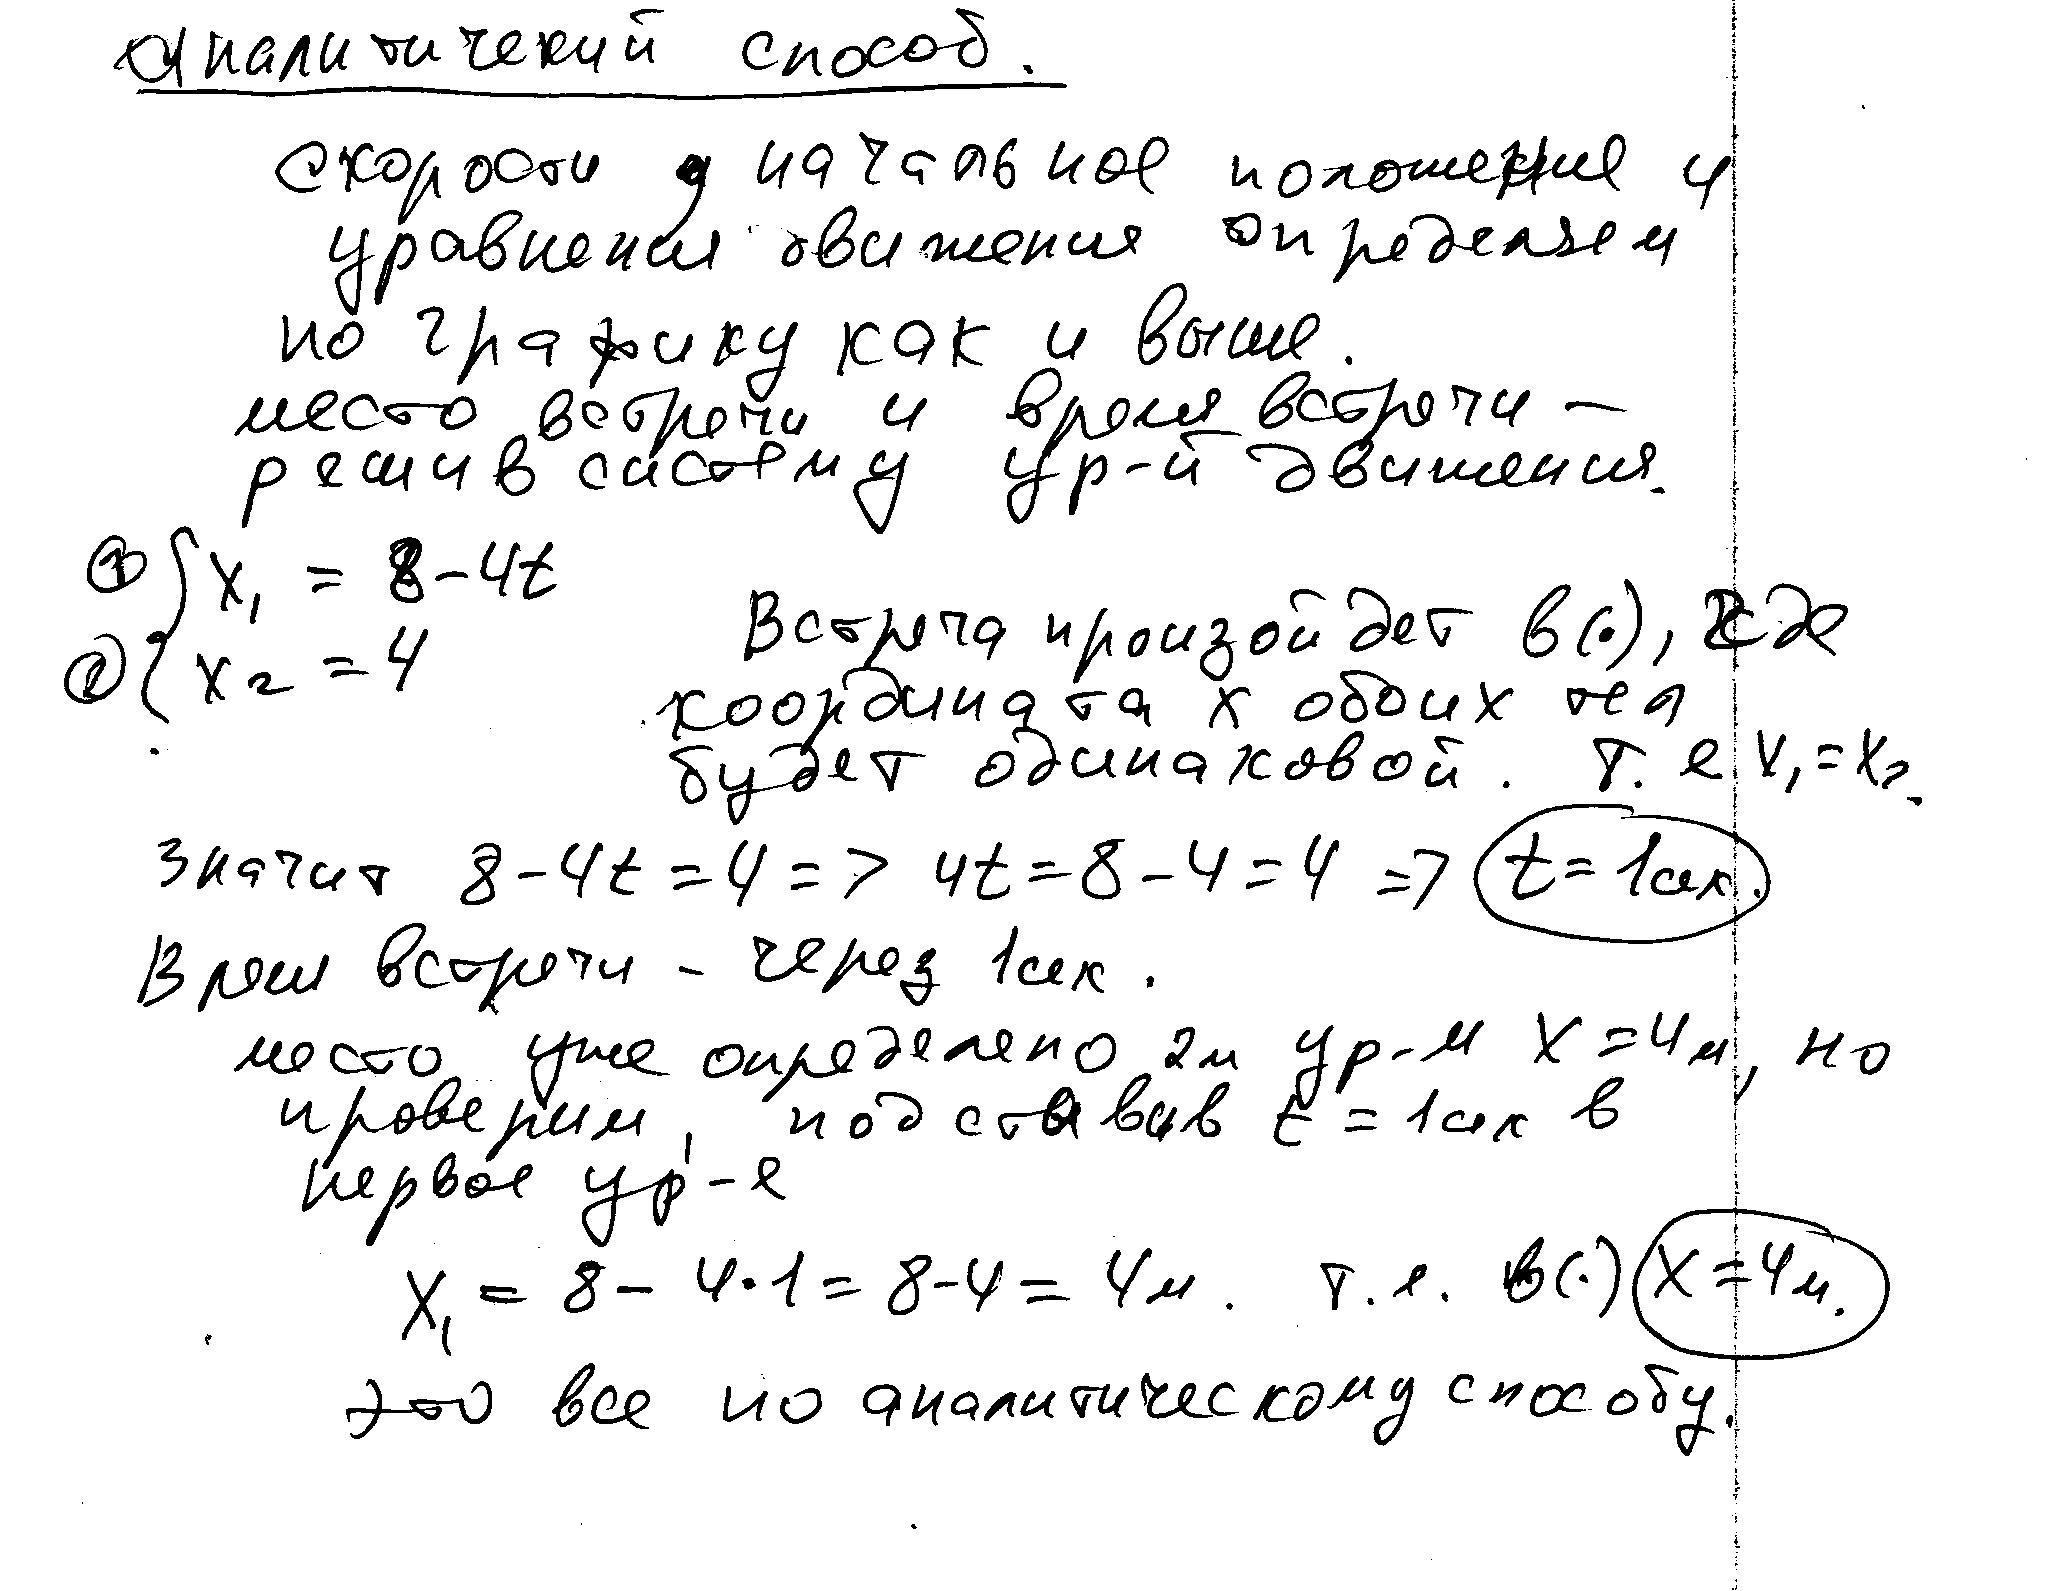 Аналитичекий способ.
Скорости, начальное положение и
уравнения движения определяем
по графику как и выше.
место встречи и время встречи –
решив систему ур-й движения.
① { x₁ = 8 – 4t
② { x₂ = 4
Встреча произойдет в (·), где
координата x обоих тел
будет одинаковой. т. е x₁ = x₂.
Значит 8 – 4t = 4 => 4t = 8 – 4 = 4 => t = 1сек.
Время встречи – через 1сек.
место уже определено 2м ур-м X = 4м, но
проверим, подставив t = 1сек в
первое ур-е
X₁ = 8 – 4·1 = 8-4 = 4м. т.е. в (·) X = 4м.
это все по аналитическому способу.